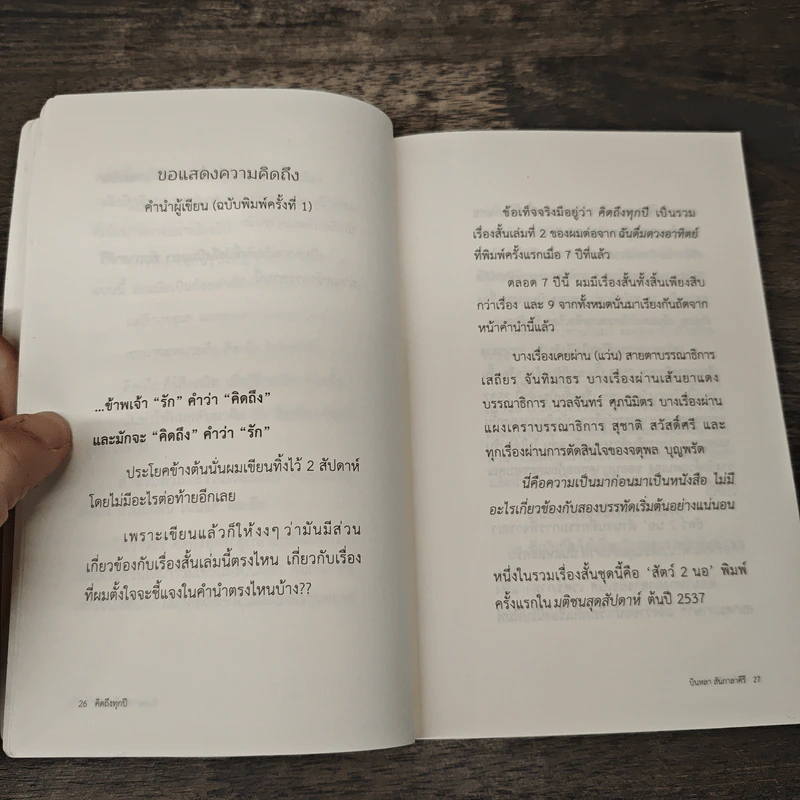 ขอแสดงความคิดถึง
คำนำผู้เขียน (ฉบับพิมพ์ครั้งที่ 1)
...ข้าพเจ้า “รัก” คำว่า “คิดถึง”
และมักจะ “คิดถึง” คำว่า “รัก”
ประโยคข้างต้นนั่นผมเขียนทิ้งไว้ 2 สัปดาห์
โดยไม่มีอะไรต่อท้ายอีกเลย
เพราะเขียนแล้วก็ให้งงๆ ว่ามันมีส่วน
เกี่ยวข้องกับเรื่องสั้นเล่มนี้ตรงไหน เกี่ยวกับเรื่อง
ที่ผมตั้งใจจะชี้แจงในคำนำตรงไหนบ้าง??
26 คิดถึงทุกปี
ข้อเท็จจริงมีอยู่ว่า คิดถึงทุกปี เป็นรวม
เรื่องสั้นเล่มที่ 2 ของผมต่อจาก ฉันดื่มดวงอาทิตย์
ที่พิมพ์ครั้งแรกเมื่อ 7 ปีที่แล้ว
ตลอด 7 ปีนี้ ผมมีเรื่องสั้นทั้งสิ้นเพียงสิบ
กว่าเรื่อง และ 9 จากทั้งหมดนั่นมาเรียงกันถัดจาก
หน้าคำนำนี้แล้ว
บางเรื่องเคยผ่าน (แว่น) สายตาบรรณาธิการ
เสถียร จันทิมาธร บางเรื่องผ่านเส้นยาแดง
บรรณาธิการ นวลจันทร์ ศุภนิมิตร บางเรื่องผ่าน
แผงเคราบรรณาธิการ สุชาติ สวัสดิ์ศรี และ
ทุกเรื่องผ่านการตัดสินใจของจตุพล บุญพรัด
นี่คือความเป็นมาก่อนมาเป็นหนังสือ ไม่มี
อะไรเกี่ยวข้องกับสองบรรทัดเริ่มต้นอย่างแน่นอน
หนึ่งในรวมเรื่องสั้นชุดนี้คือ ‘สัตว์ 2 นอ’ พิมพ์
ครั้งแรกใน มติชนสุดสัปดาห์ ต้นปี 2537
บินหลา สันกาลาคีรี 27